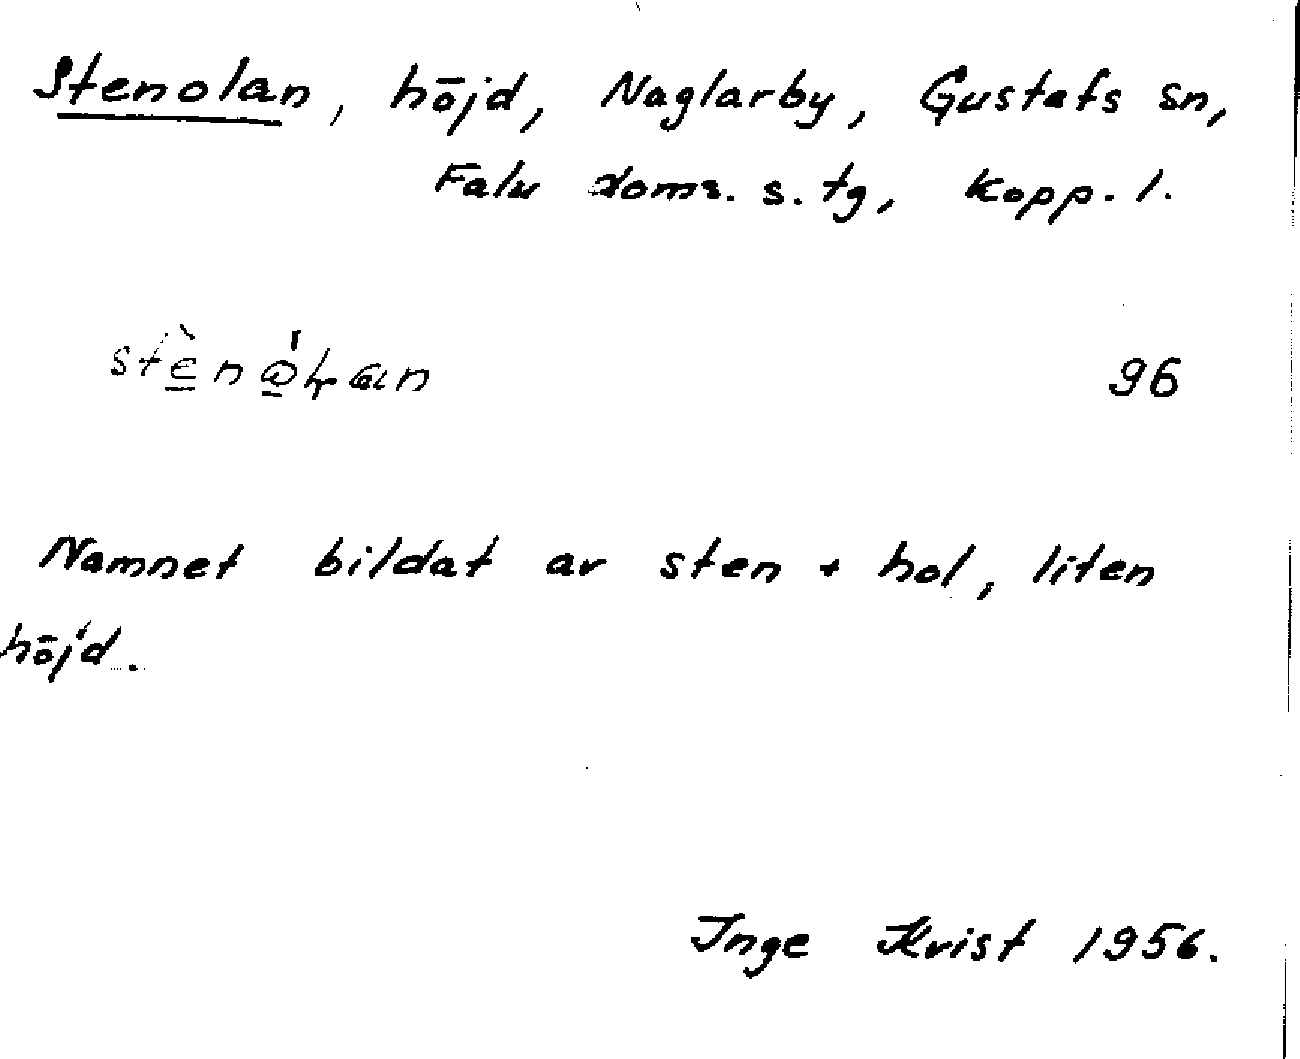 Stenolan, höjd, Naglarby, Gustafs sn,
Falu doms. s. tg, Kopp. l.
96
Namnet bildat av sten + hol, liten
höjd.
Inge Krist 1956.